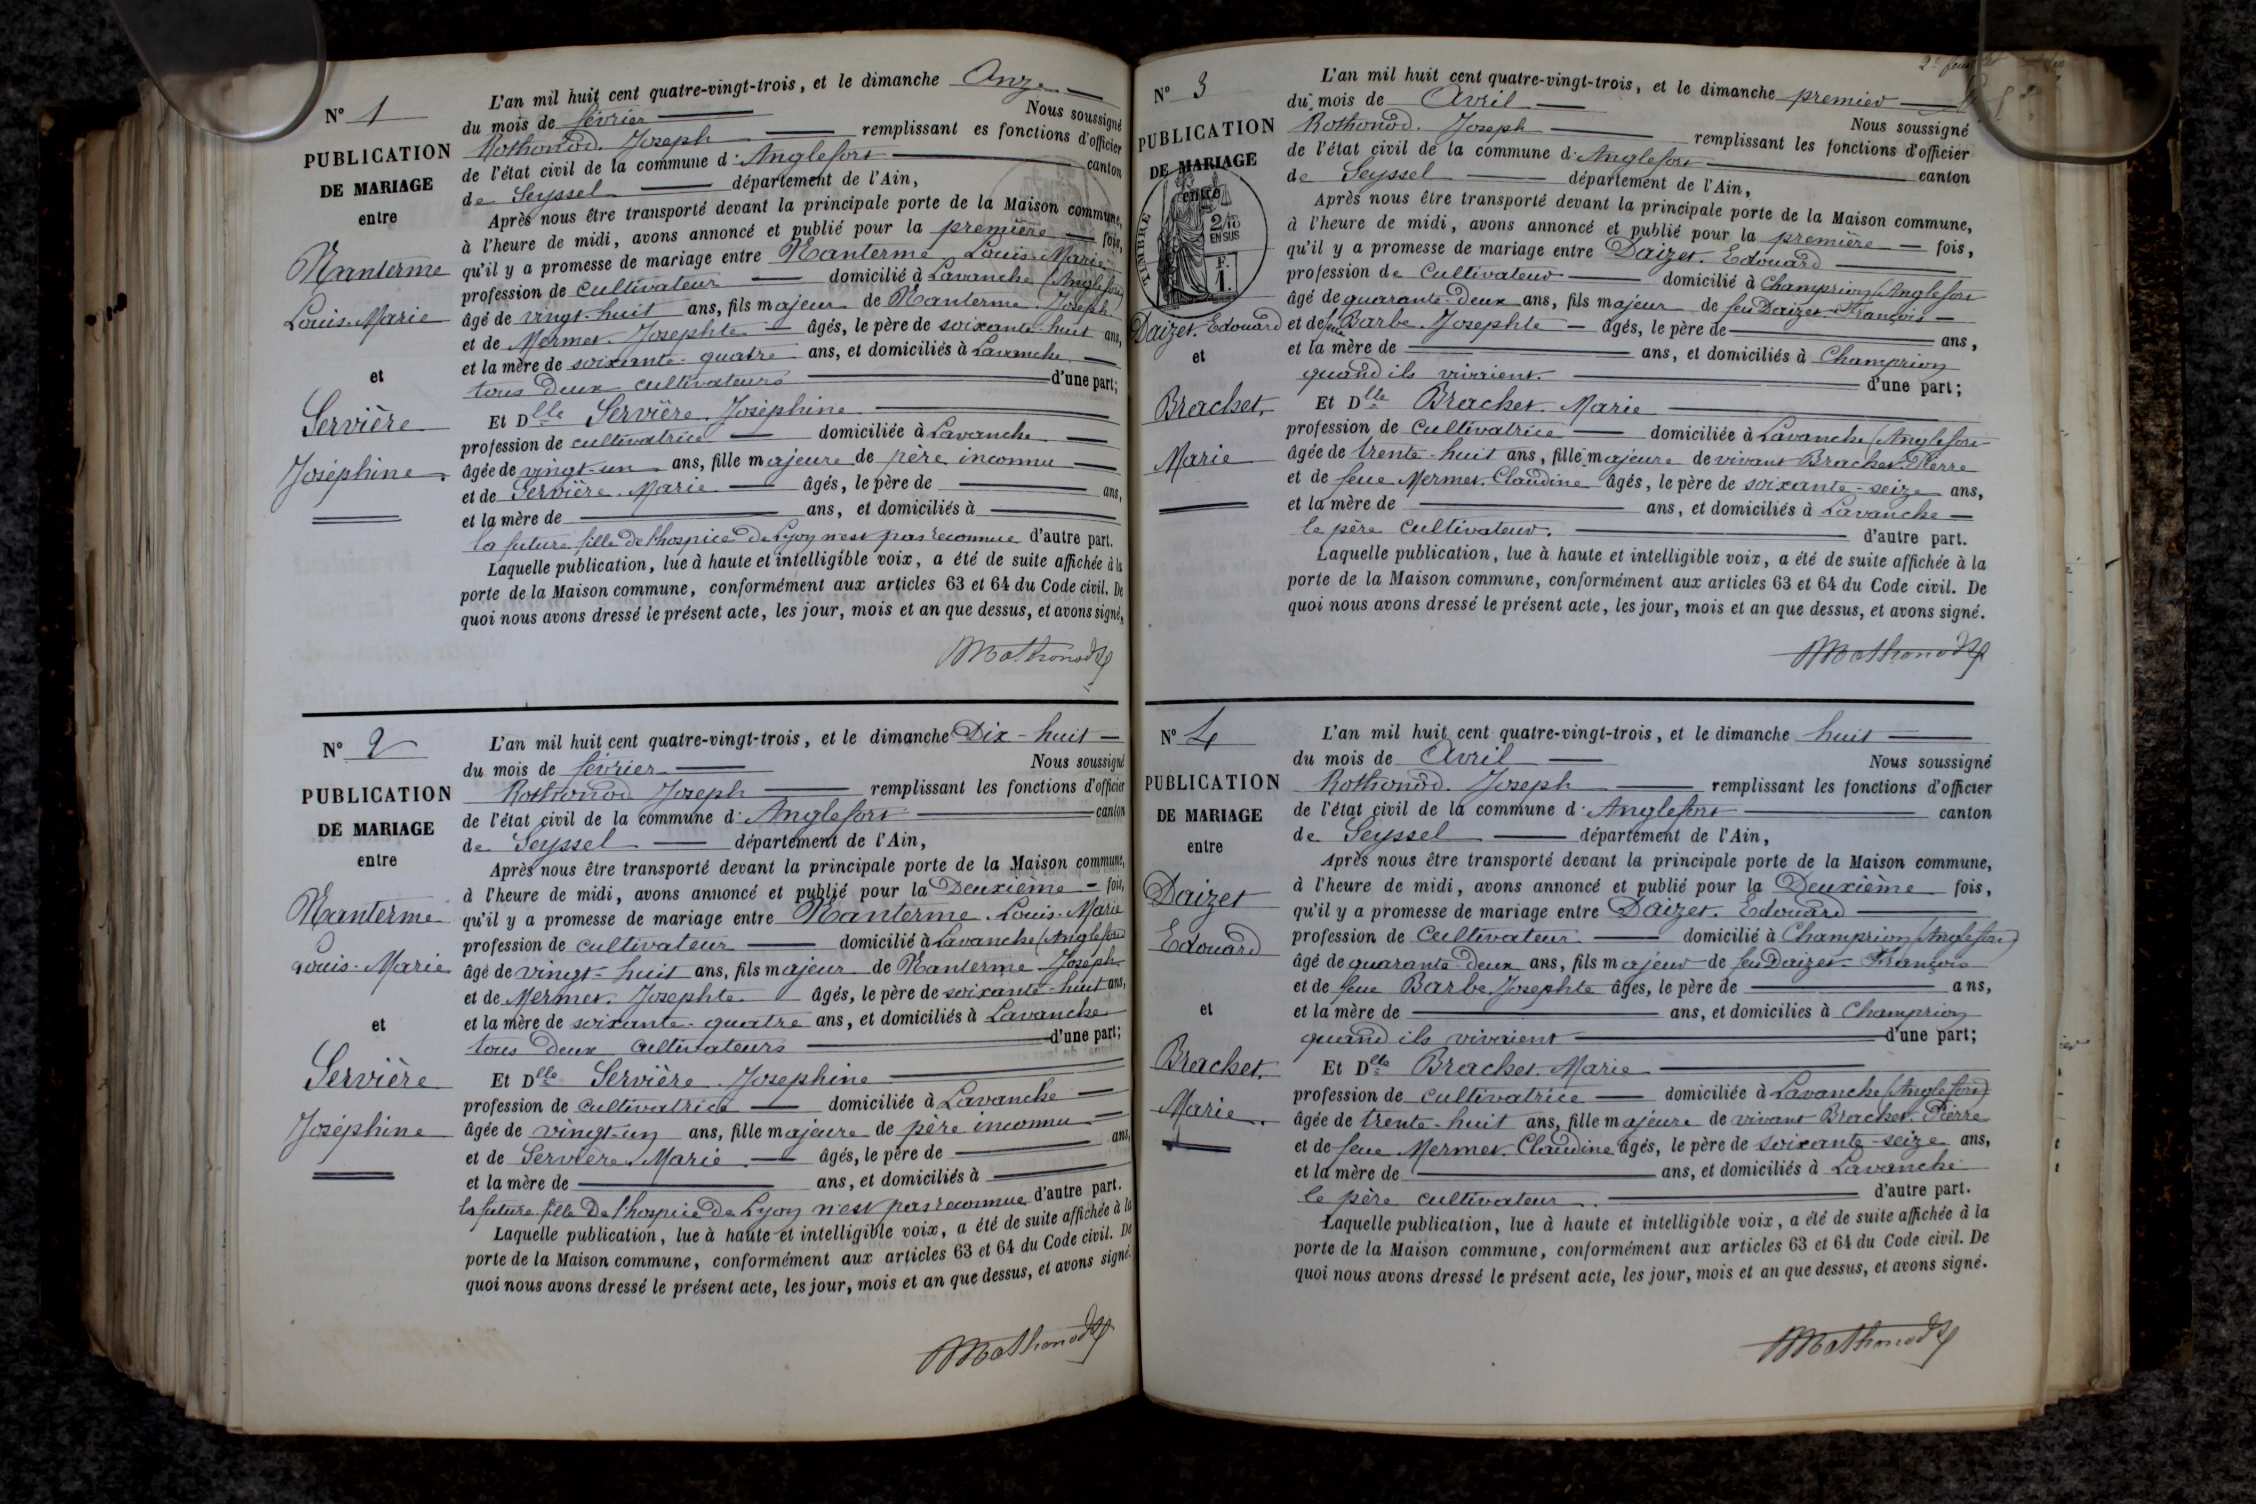 N° 1
PUBLICATION
DE MARIAGE
entre
Nanterme
Louis-Marie
et
Servière
Joséphine.
L'an mil huit cent quatre-vingt-trois, et le dimanche Onze
du mois de février Nous soussigné
Rothonod. Joseph remplissant es fonctions d'officier
de l'état civil de la commune d' Anglefort canton
de Seyssel département de l'Ain,
Après nous être transporté devant la principale porte de la Maison commune,
à l'heure de midi, avons annoncé et publié pour la première fois,
qu'il y a promesse de mariage entre Nanterme Louis-Marie
profession de cultivateur domicilié à Lavanche (Anglefort)
âgé de vingt-huit ans, fils majeur de Nanterme Joseph
et de Mermet. Josephte âgés, le père de soixante-huit ans,
et la mère de soixante-quatre ans, et domiciliés à Lavanche
tous deux cultivateurs d'une part;
Et Dlle Servière. Joséphine
profession de cultivatrice domiciliée à Lavanche
âgée de vingt-un ans, fille majeure de père inconnu
et de Servière. Marie âgés, le père de ans,
et la mère de ans, et domiciliés à
la future fille de l'hospice de Lyon n'est pas reconnue d'autre part.
Laquelle publication, lue à haute et intelligible voix, a été de suite affichée à la
porte de la Maison commune, conformément aux articles 63 et 64 du Code civil. De
quoi nous avons dressé le présent acte, les jour, mois et an que dessus, et avons signé,
N° 2
PUBLICATION
DE MARIAGE
entre
Nanterme
Louis-Marie
et
Servière
Joséphine
L'an mil huit cent quatre-vingt-trois, et le dimanche Dix-huit
du mois de février Nous soussigné
Rothonod Joseph remplissant les fonctions d'officier
de l'état civil de la commune d' Anglefort canton
de Seyssel département de l'Ain,
Après nous être transporté devant la principale porte de la Maison commune,
à l'heure de midi, avons annoncé et publié pour la Deuxième fois,
qu'il y a promesse de mariage entre Nanterme. Louis-Marie
profession de cultivateur domicilié à Lavanche (Anglefort)
âgé de vingt-huit ans, fils majeur de Nanterme Joseph
et de Mermet. Josephte. âgés, le père de soixante-huit ans,
et la mère de soixante-quatre ans, et domiciliés à Lavanche
tous deux cultivateurs d'une part;
Et Dlle Servière. Josephine
profession de cultivatrice domiciliée à Lavanche
âgée de vingt-un ans, fille majeure de père inconnu
et de Servière. Marie âgés, le père de ans,
et la mère de ans, et domiciliés à
la future fille de l'hospice de Lyon n'est pas reconnue d'autre part.
Laquelle publication, lue à haute et intelligible voix, a été de suite affichée à la
porte de la Maison commune, conformément aux articles 63 et 64 du Code civil. De
quoi nous avons dressé le présent acte, les jour, mois et an que dessus, et avons signé.
N° 3
PUBLICATION
DE MARIAGE
entre
TIMBRE
2/10
EN SUS
F.
1.
Daizet. Edouard
et
Brachet.
Marie
L'an mil huit cent quatre-vingt-trois, et le dimanche premier
du mois de Avril Nous soussigné
Rothonod. Joseph remplissant les fonctions d'officier
de l'état civil de la commune d' Anglefort canton
de Seyssel département de l'Ain,
Après nous être transporté devant la principale porte de la Maison commune,
à l'heure de midi, avons annoncé et publié pour la première fois,
qu'il y a promesse de mariage entre Daizet. Edouard
profession de cultivateur domicilié à Champrion (Anglefort
âgé de quarante-deux ans, fils majeur de feu Daizet-François
et de feue Barbe. Josephte âgés, le père de ans,
et la mère de ans, et domiciliés à Champrion
quand ils vivaient. d'une part;
Et Dlle Brachet. Marie
profession de cultivatrice domiciliée à Lavanche (Anglefort
âgée de trente-huit ans, fille majeure de vivant Brachet. Pierre
et de feue Mermet. Claudine âgés, le père de soixante-seize ans,
et la mère de ans, et domiciliés à Lavanche
le père cultivateur. d'autre part.
Laquelle publication, lue à haute et intelligible voix, a été de suite affichée à la
porte de la Maison commune, conformément aux articles 63 et 64 du Code civil. De
quoi nous avons dressé le présent acte, les jour, mois et an que dessus, et avons signé.
N° 4
PUBLICATION
DE MARIAGE
entre
Daizet
Edouard
et
Brachet.
Marie.
L'an mil huit cent quatre-vingt-trois, et le dimanche huit
du mois de Avril Nous soussigné
Rothonod. Joseph remplissant les fonctions d'officier
de l'état civil de la commune d' Anglefort canton
de Seyssel département de l'Ain,
Après nous être transporté devant la principale porte de la Maison commune,
à l'heure de midi, avons annoncé et publié pour la Deuxième fois,
qu'il y a promesse de mariage entre Daizet. Edouard
profession de cultivateur domicilié à Champrion (Anglefort)
âgé de quarante-deux ans, fils majeur de feu Daizet-François
et de feue Barbe Josephte âgés, le père de ans,
et la mère de ans, et domiciliés à Champrion
quand ils vivaient d'une part;
Et Dlle Brachet. Marie
profession de cultivatrice domiciliée à Lavanche (Anglefort)
âgée de trente-huit ans, fille majeure de vivant Brachet. Pierre
et de feue Mermet. Claudine âgés, le père de soixante-seize ans,
et la mère de ans, et domiciliés à Lavanche
le père cultivateur d'autre part.
Laquelle publication, lue à haute et intelligible voix, a été de suite affichée à la
porte de la Maison commune, conformément aux articles 63 et 64 du Code civil. De
quoi nous avons dressé le présent acte, les jour, mois et an que dessus, et avons signé.